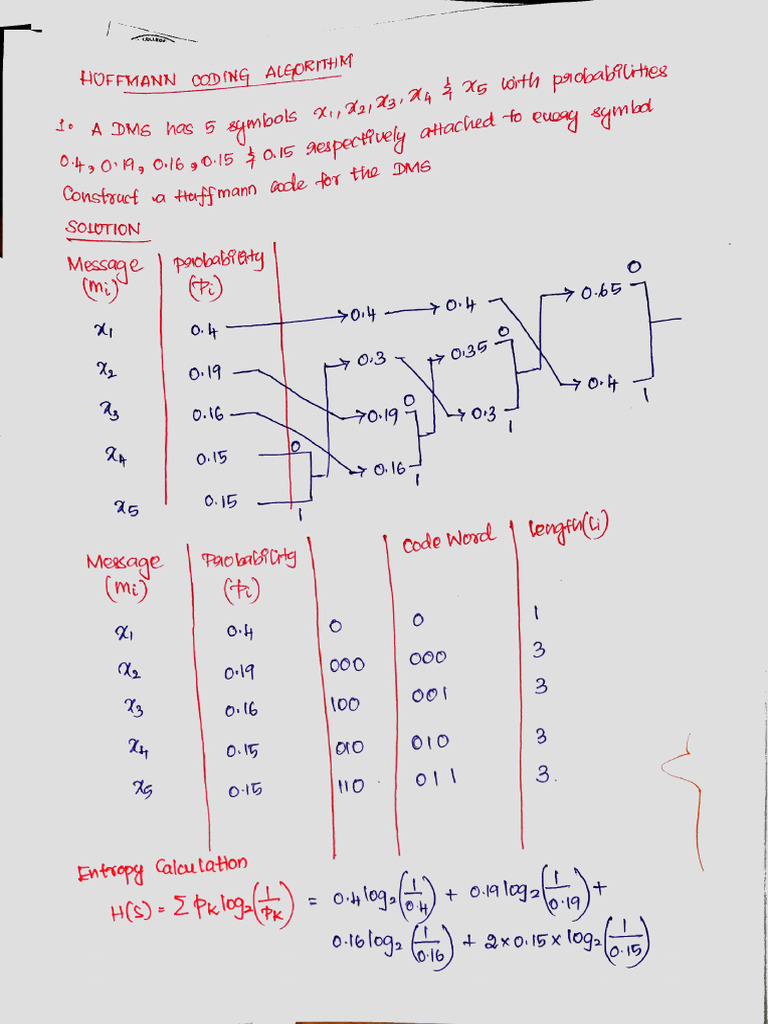 COLLEGE
HOFFMANN CODING ALGORITHM
1. A DMS has 5 symbols x1, x2, x3, x4 & x5 with probabilities
0.4, 0.19, 0.16, 0.15 & 0.15 respectively attached to every symbol
Construct a Huffmann code for the DMS
SOLUTION
Message | Probability
(mi) | (Pi)
0
x1 0.4 → 0.4 → 0.4 → 0.65
0
x2 0.19 → 0.3 → 0.35
→ 0.4
1
0
x3 0.16 → 0.19 → 0.3
1
0
x4 0.15 → 0.16
1
x5 0.15
1
Message | Probability | | Code Word | Length(Li)
(mi) | (Pi)
x1 0.4 0 0 1
x2 0.19 000 000 3
x3 0.16 100 001 3
x4 0.15 010 010 3
x5 0.15 110 011 3.
Entropy Calculation
H(S) = Σ PK log2(1/PK) = 0.4 log2(1/0.4) + 0.19 log2(1/0.19) +
0.16 log2(1/0.16) + 2×0.15×log2(1/0.15)